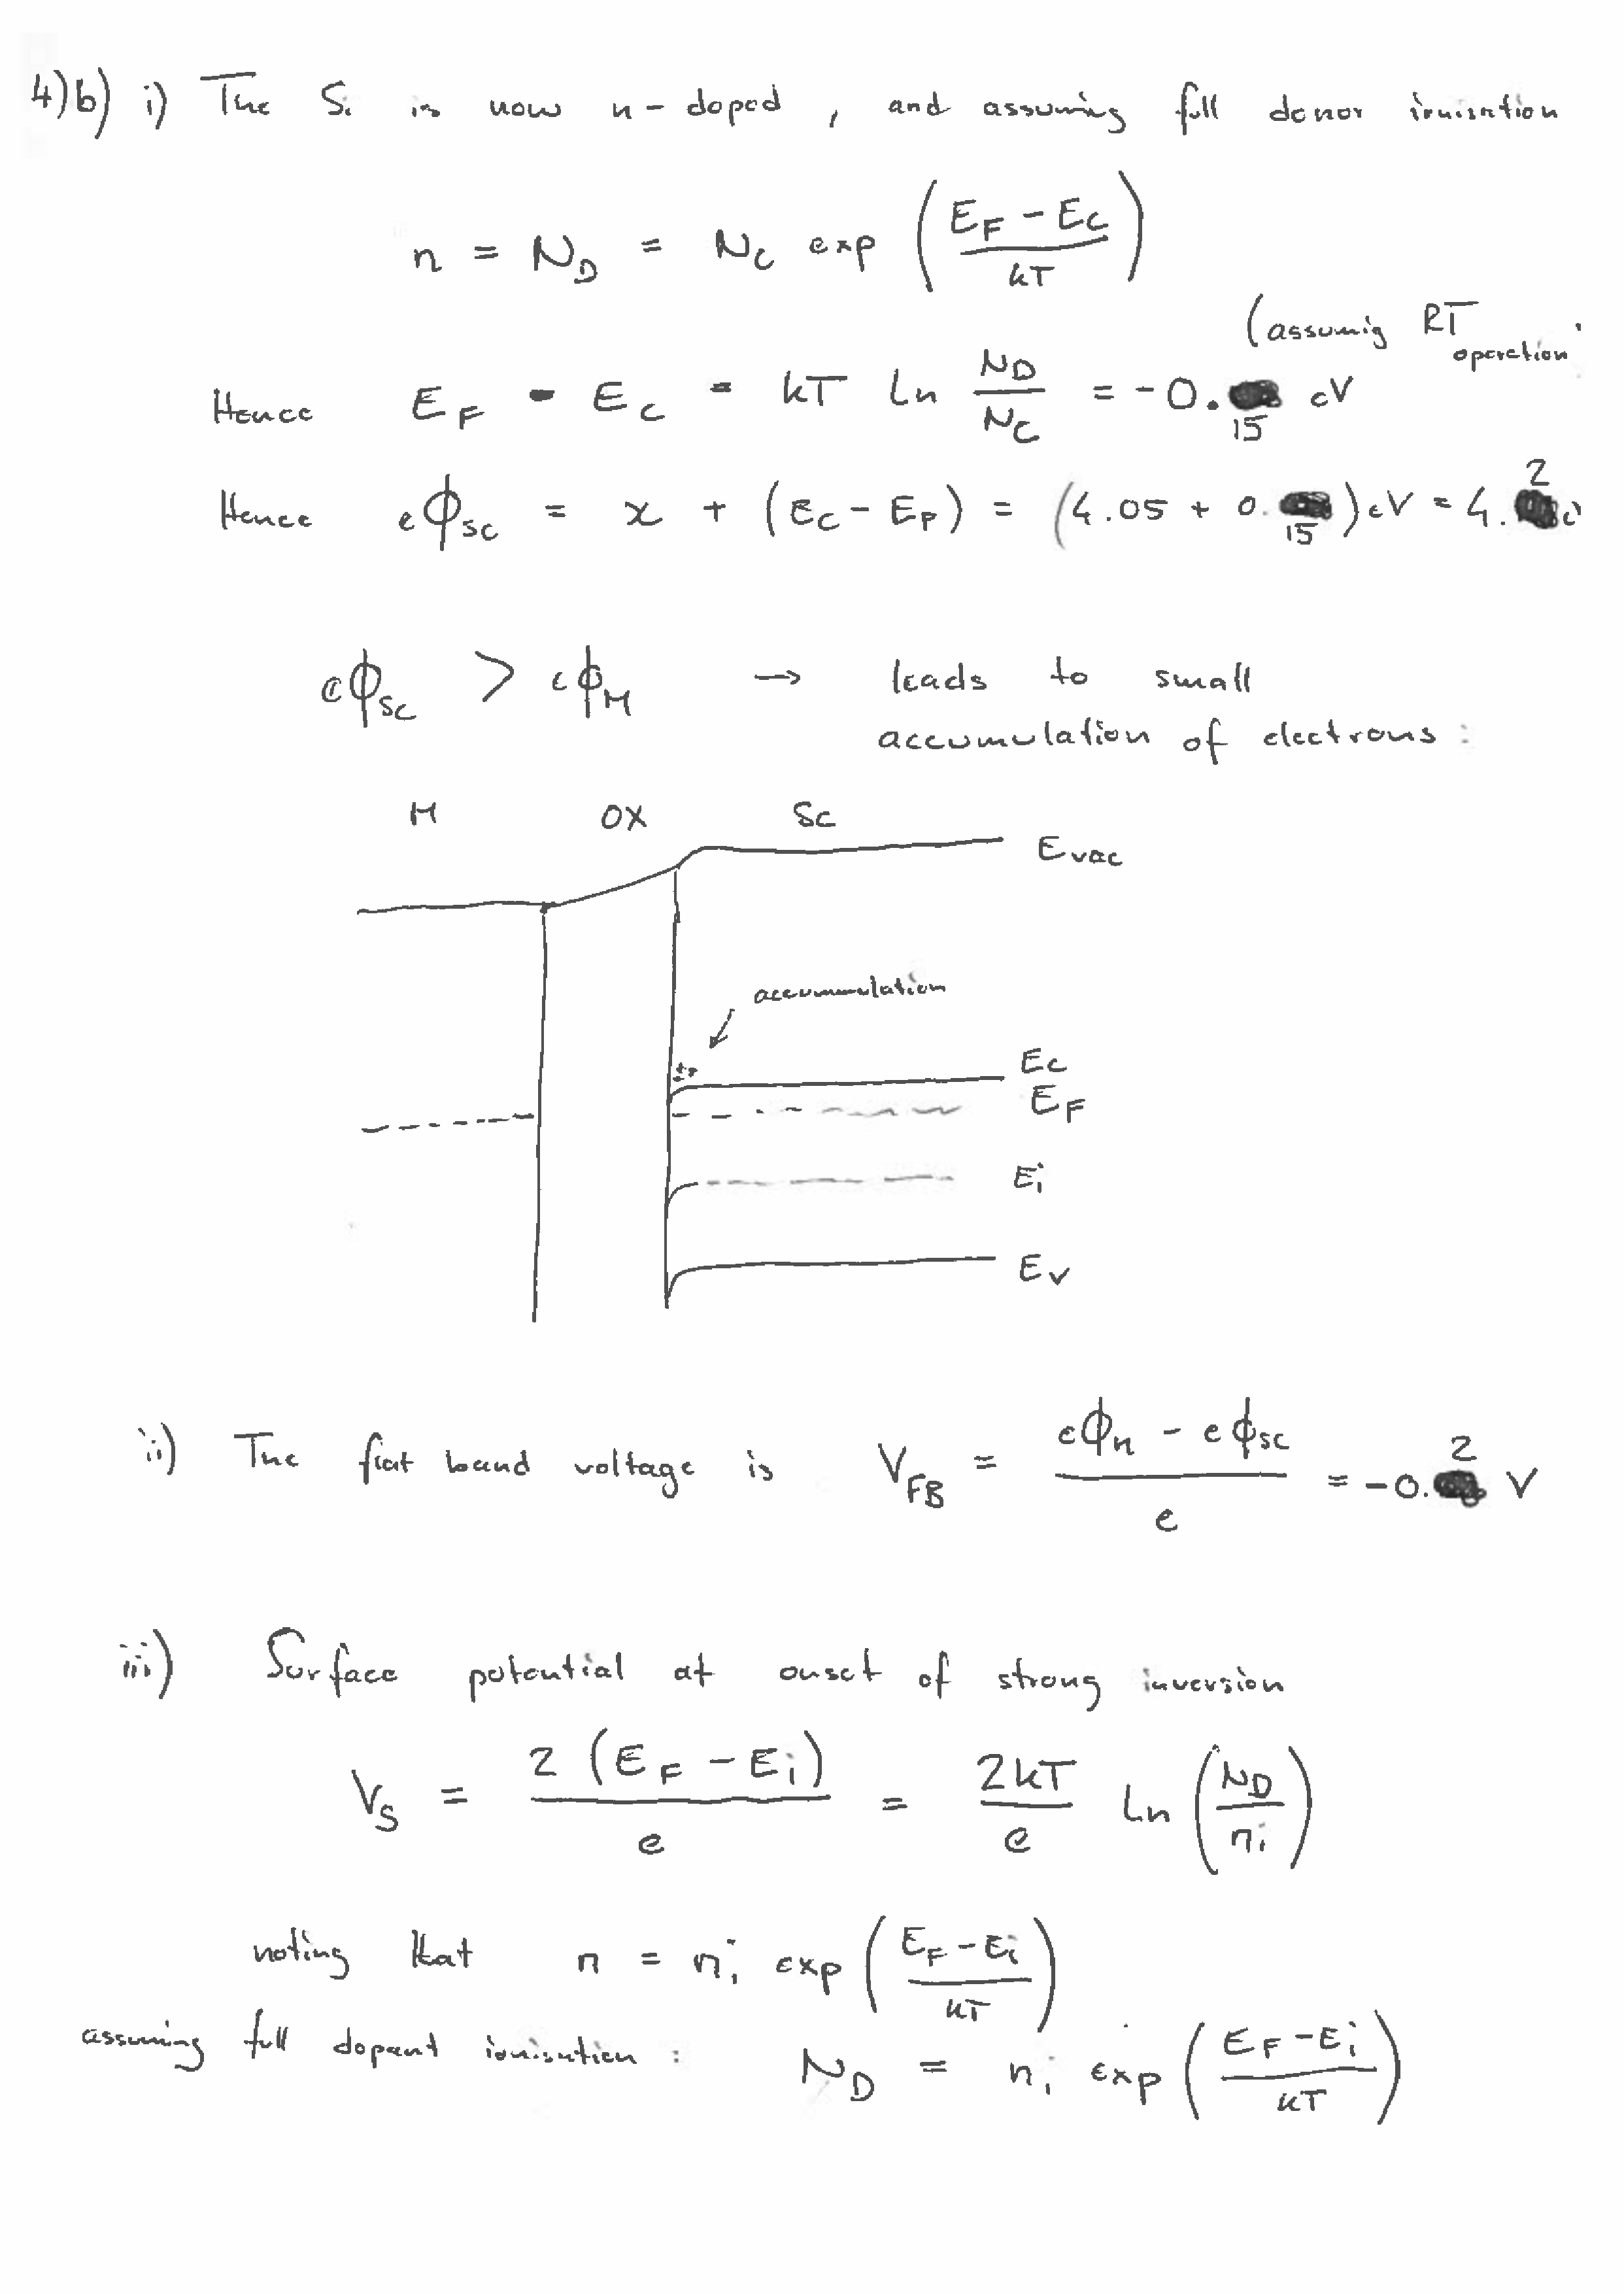 4)b) i) The Si is now n-doped, and assuming full donor ionisation
n = N_D = N_C exp ( (E_F - E_C) / kT )
(assumig RT operation
Hence E_F - E_C = kT Ln N_D / N_C = -0.15 eV
Hence eϕ_sc = x + (E_C - E_F) = (4.05 + 0.15) eV = 4.2 e
eϕ_sc > eϕ_M → leads to small
accumulation of electrons:
M OX Sc
Evac
accumulation
Ec
E_F
Ei
Ev
ii) The flat band voltage is V_FB = (eϕ_M - eϕ_sc) / e = -0.2 V
iii) Surface potential at onset of strong inversion
V_S = 2 (E_F - E_i) / e = 2kT / e Ln ( N_D / n_i )
noting that n = n_i exp ( (E_F - E_i) / kT )
assuming full dopant ionisation: N_D = n_i exp ( (E_F - E_i) / kT )